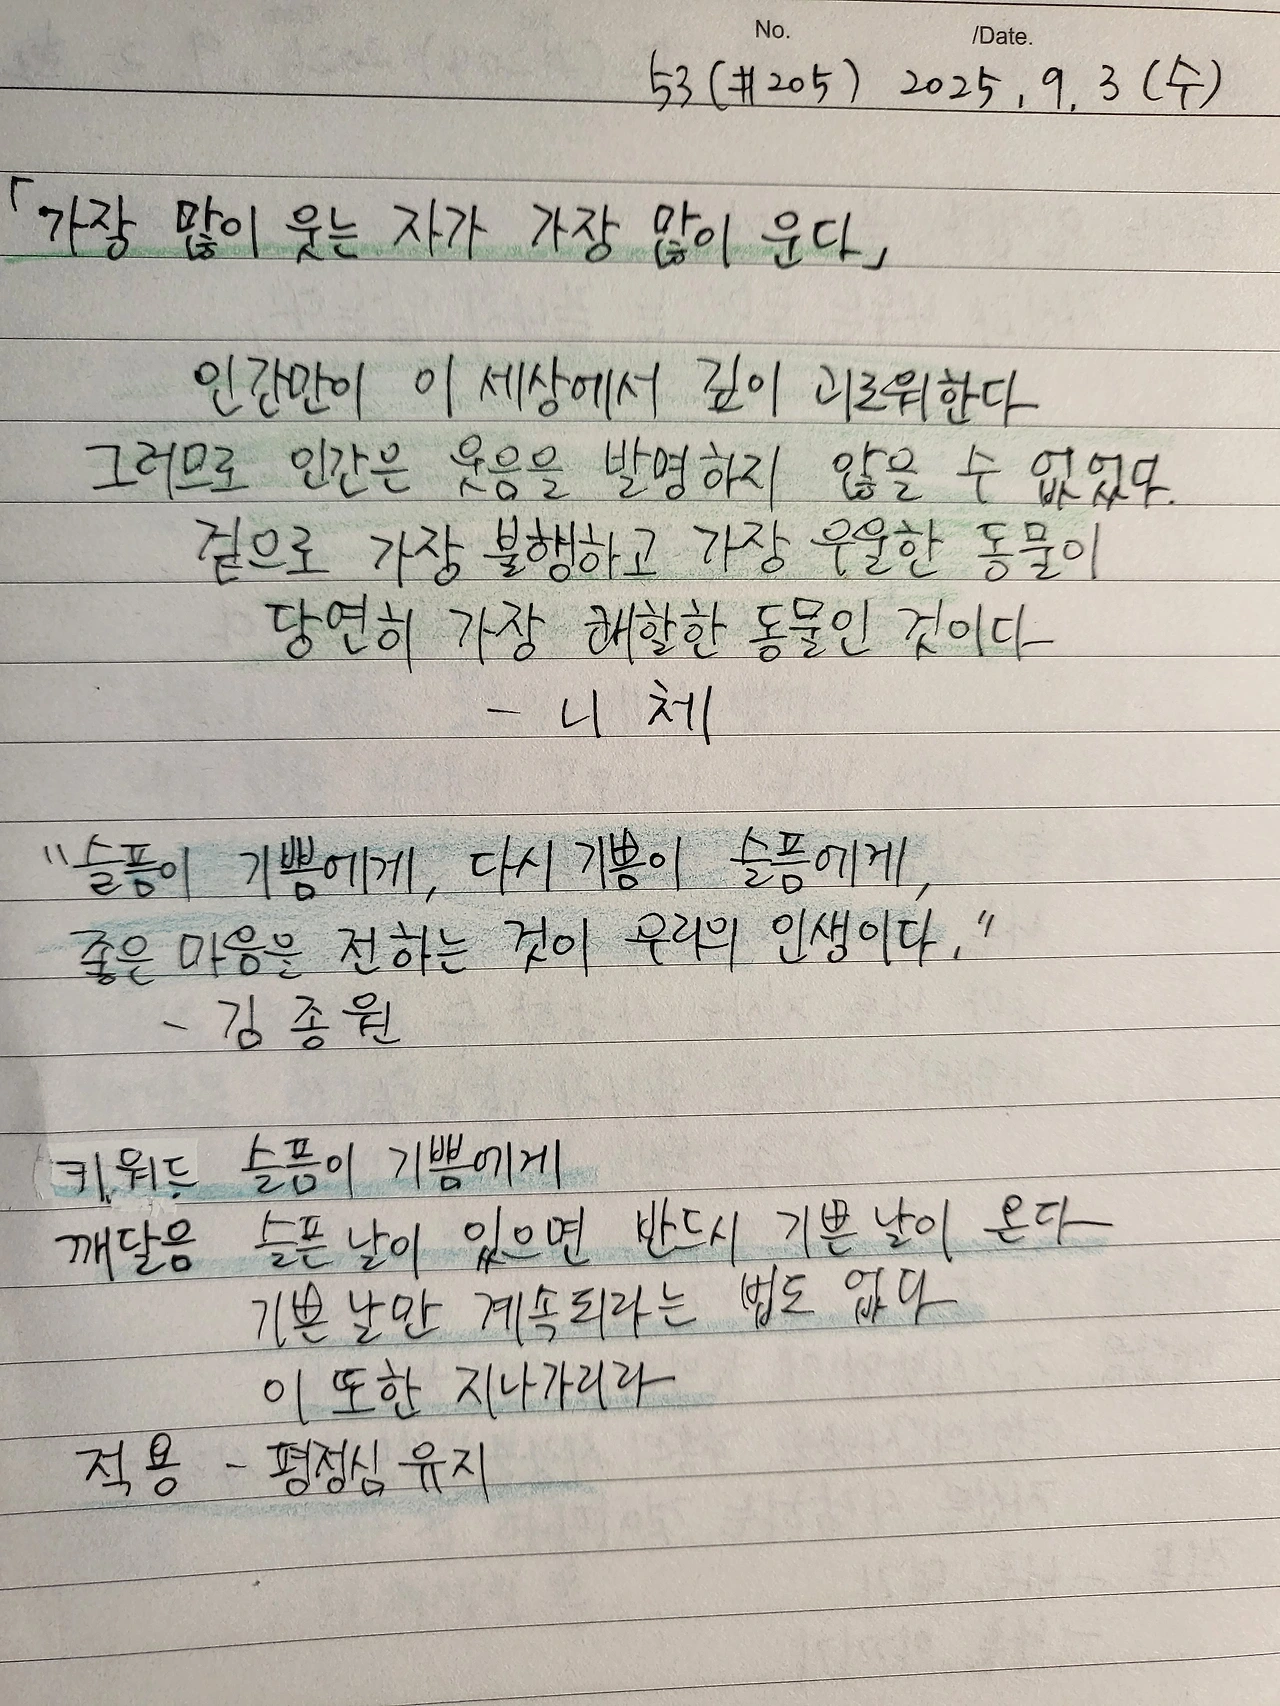 No. /Date.
53(#205) 2025. 9. 3 (수)
「가장 많이 웃는 자가 가장 많이 운다」
인간만이 이 세상에서 깊이 괴로워한다
그러므로 인간은 웃음을 발명하지 않을 수 없었다.
겉으로 가장 불행하고 가장 우울한 동물이
당연히 가장 쾌할한 동물인 것이다
- 니체
"슬픔이 기쁨에게, 다시 기쁨이 슬픔에게,
좋은 마음을 전하는 것이 우리의 인생이다."
- 김종원
키워드 슬픔이 기쁨에게
깨달음 슬픈 날이 있으면 반드시 기쁜 날이 온다
기쁜 날만 계속되라는 법도 없다
이 또한 지나가리라
적용 - 평정심 유지